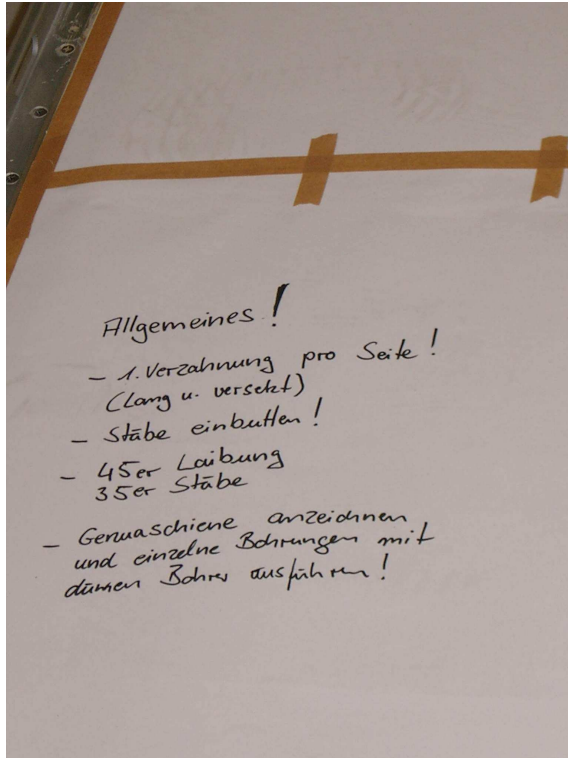 Allgemeines!
- 1. Verzahnung pro Seite!
(Lang u. versetzt)
- Stäbe einbutten!
- 45er Laibung
35er Stäbe
- Genuaschiene anzeichnen
und einzelne Bohrungen mit
dünnen Bohrer ausführen!